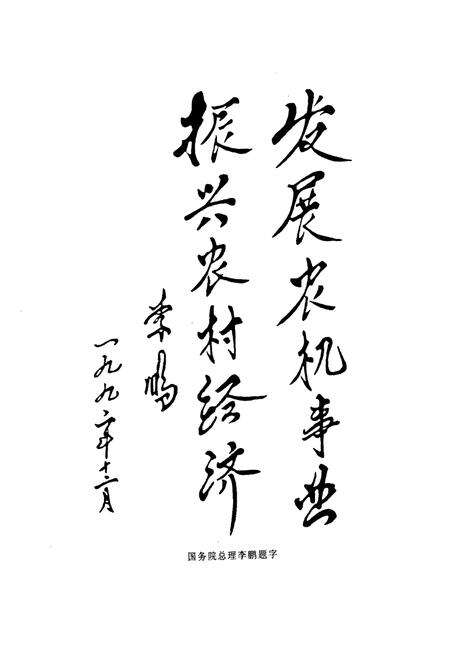 发展农机事业
振兴农村经济
李鹏
一九九二年十二月
国务院总理李鹏题字